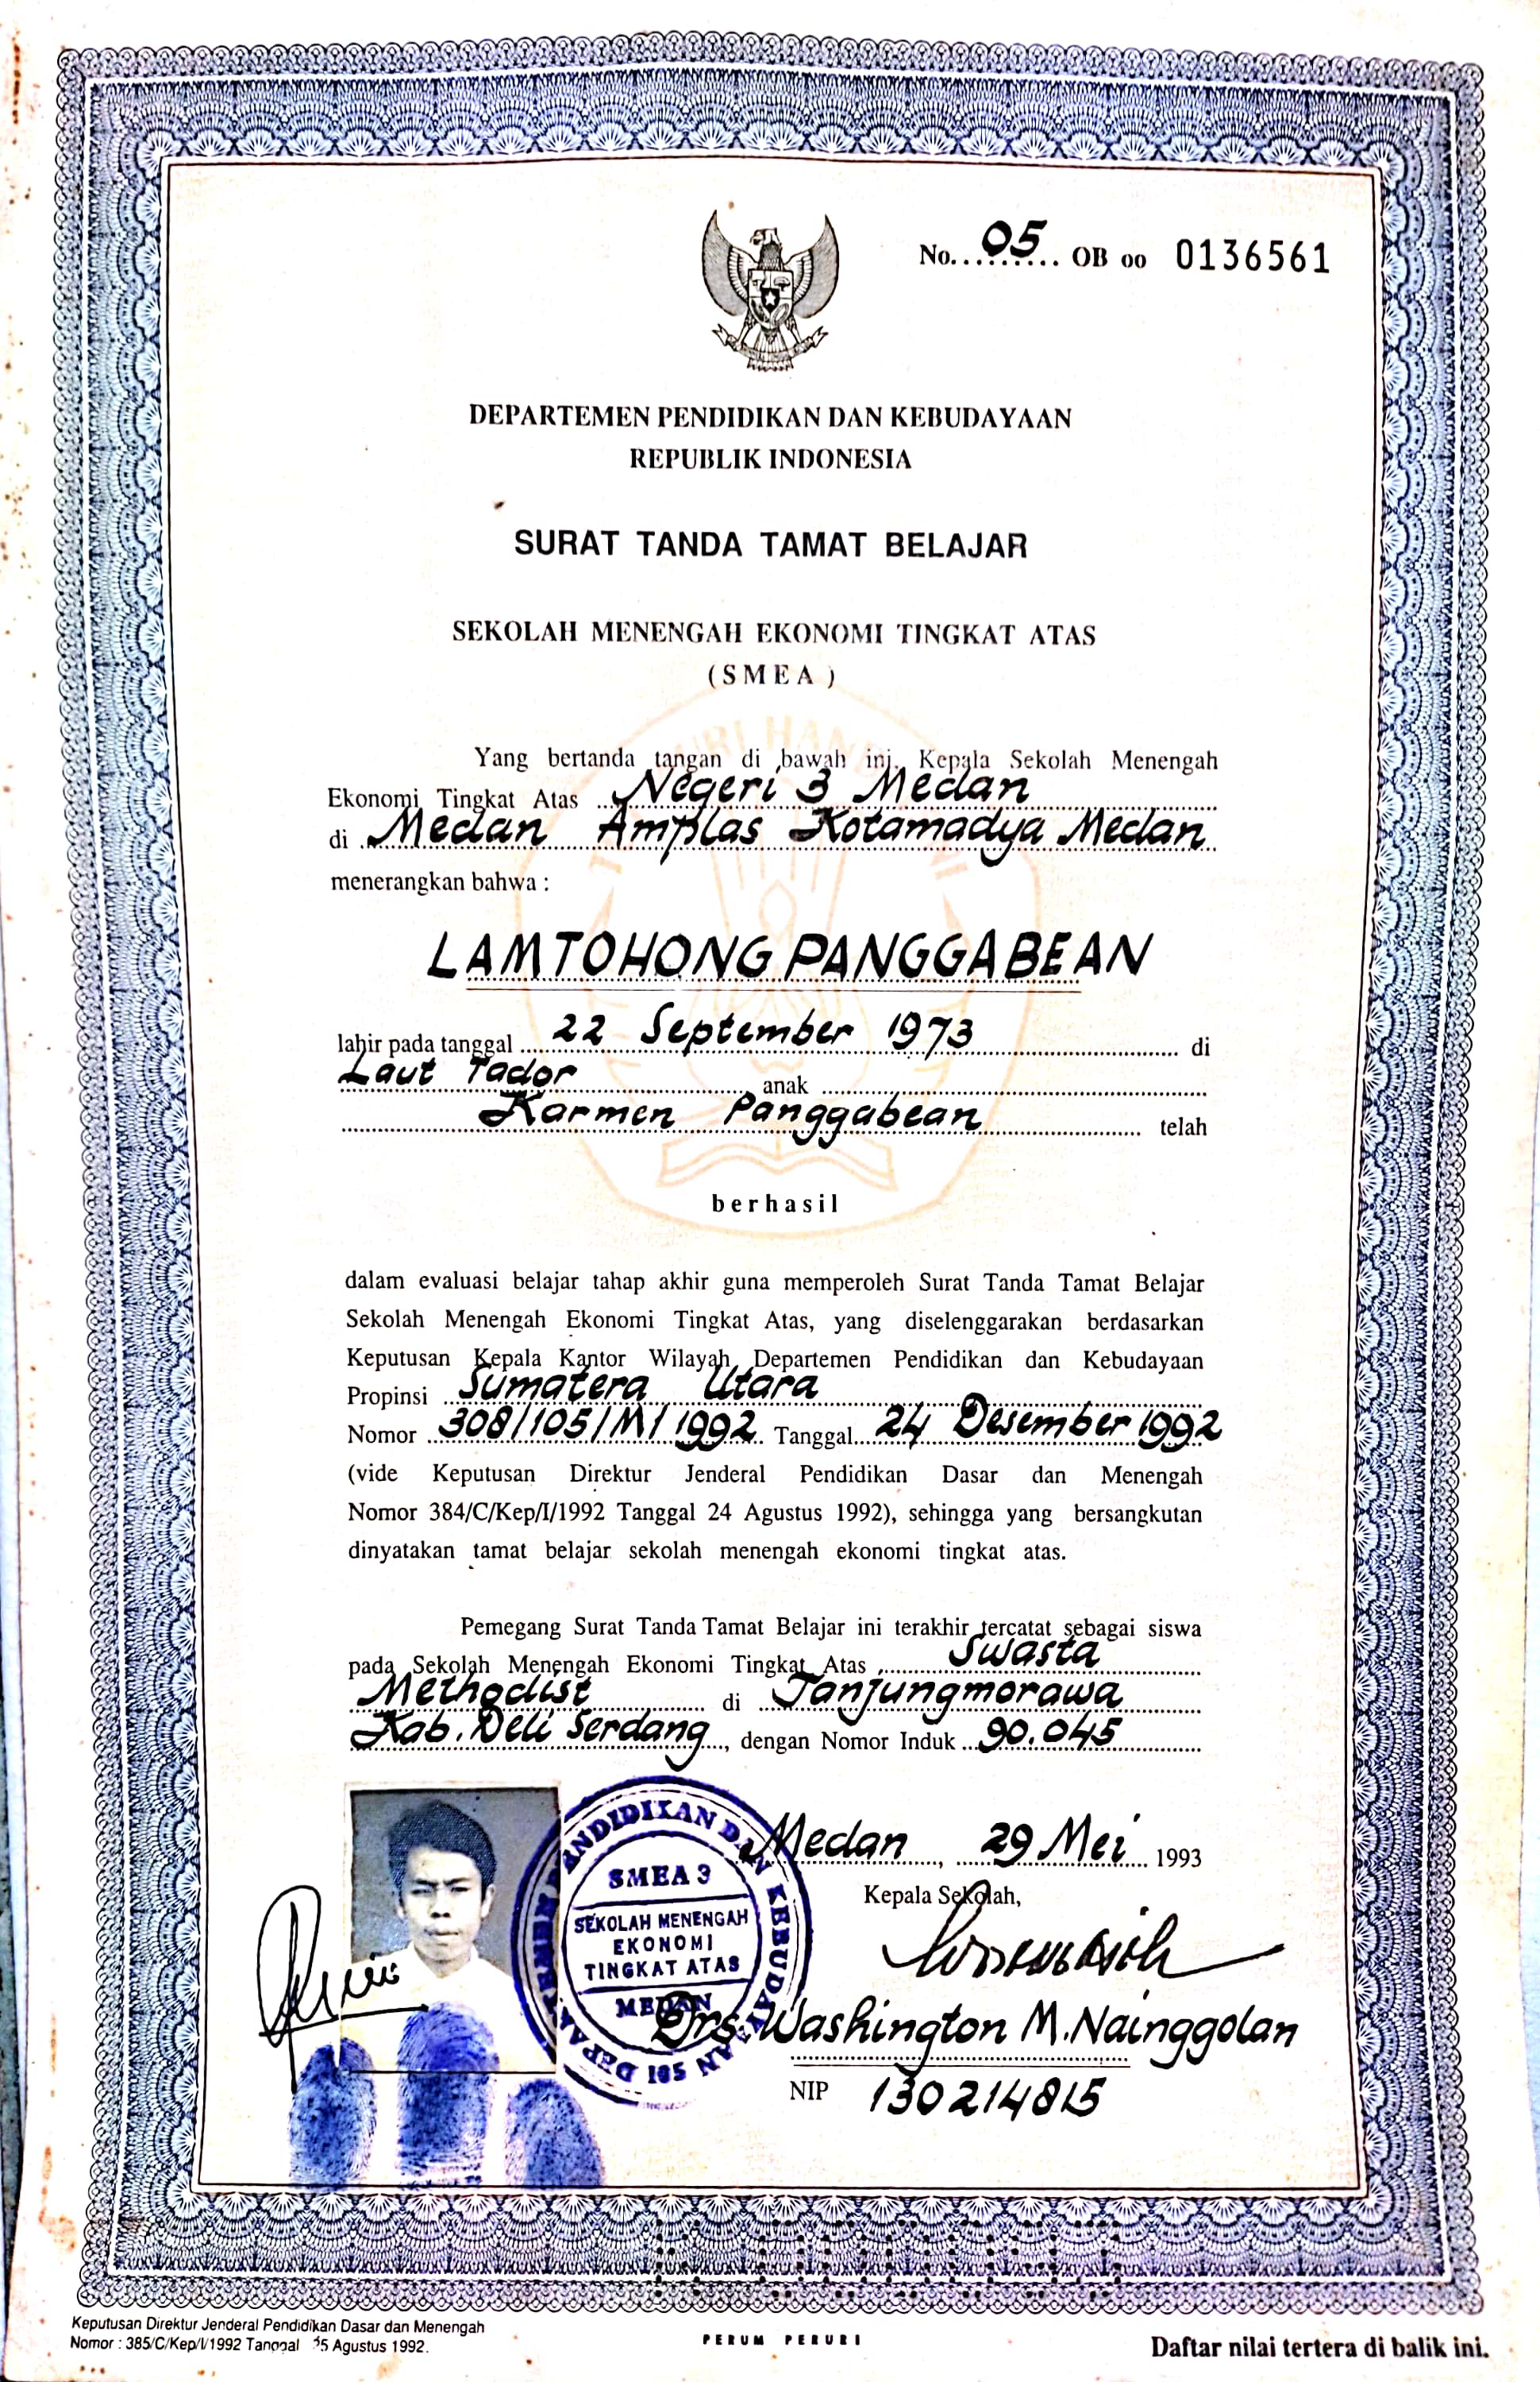 No. 05 OB oo 0136561
DEPARTEMEN PENDIDIKAN DAN KEBUDAYAAN
REPUBLIK INDONESIA
SURAT TANDA TAMAT BELAJAR
SEKOLAH MENENGAH EKONOMI TINGKAT ATAS
(SMEA)
Yang bertanda tangan di bawah ini, Kepala Sekolah Menengah
Ekonomi Tingkat Atas Negeri 3 Medan
di Medan Amplas Kotamadya Medan
menerangkan bahwa :
LAMTOHONG PANGGABEAN
lahir pada tanggal 22 September 1973 di
Laut Tador anak
Karmen Panggabean telah
berhasil
dalam evaluasi belajar tahap akhir guna memperoleh Surat Tanda Tamat Belajar
Sekolah Menengah Ekonomi Tingkat Atas, yang diselenggarakan berdasarkan
Keputusan Kepala Kantor Wilayah Departemen Pendidikan dan Kebudayaan
Propinsi Sumatera Utara
Nomor 308/105/M/1992 Tanggal 24 Desember 1992
(vide Keputusan Direktur Jenderal Pendidikan Dasar dan Menengah
Nomor 384/C/Kep/I/1992 Tanggal 24 Agustus 1992), sehingga yang bersangkutan
dinyatakan tamat belajar sekolah menengah ekonomi tingkat atas.
Pemegang Surat Tanda Tamat Belajar ini terakhir tercatat sebagai siswa
pada Sekolah Menengah Ekonomi Tingkat Atas Swasta
Methodist di Tanjungmorawa
Kab. Deli Serdang, dengan Nomor Induk 90.045
Medan, 29 Mei 1993
Kepala Sekolah,
DEPARTEMEN PENDIDIKAN DAN KEBUDAYAAN
SMEA 3
SEKOLAH MENENGAH
EKONOMI
TINGKAT ATAS
MEDAN
105
Drs. Washington M. Nainggolan
NIP 130214815
Keputusan Direktur Jenderal Pendidikan Dasar dan Menengah
Nomor : 385/C/Kep/I/1992 Tanggal 25 Agustus 1992.
PERUM PERURI
Daftar nilai tertera di balik ini.